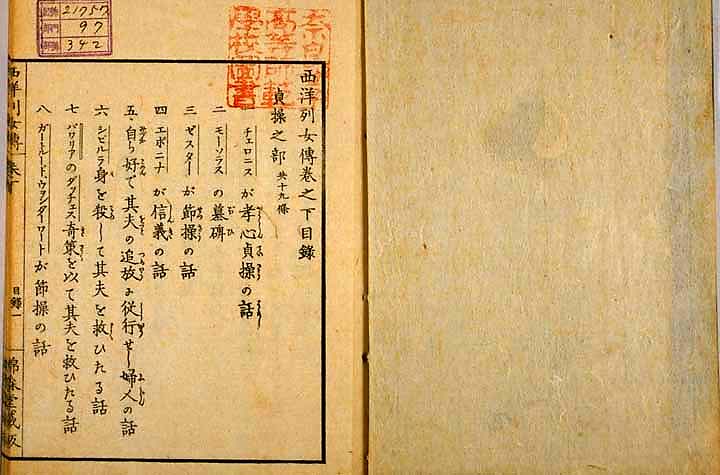 西洋列女傳卷之下目錄
貞操之部 共十九條
一 チェロニスが孝心貞操の話
二 モーソラスの墓碑
三 ゼスターが節操の話
四 エポニナが信義の話
五 自ら好で其夫の追放に從行せし婦人の話
六 シビルラ身を殺して其夫を救ひたる話
七 バワリアのダッチェス奇策を以て其夫を救ひたる話
八 ガートルード、ヴァンダーワートが節操の話
西洋列女傳 卷下
目錄 一
錦森堂藏版
21757
97
342
奈良女子高等師範學校圖書